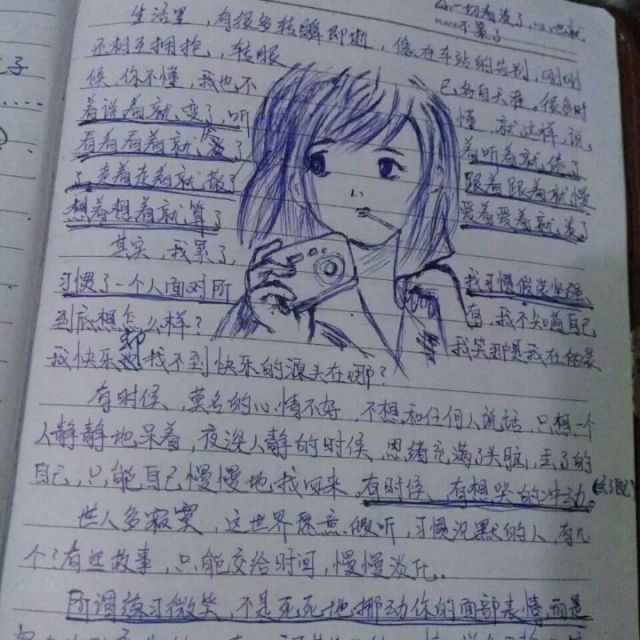 一切看淡了
不累了
生活里,有很多转瞬即逝,像在车站的告别,刚刚
还相互拥抱,转眼已各自天涯。很多时
候,你不懂,我也不懂,就这样,说
着说着就变了,听着听着就倦了
看着看着就厌了,跟着跟着就慢
了,走着走着就散了,爱着爱着就淡了
想着想着就算了
其实,我累了,
习惯了一个人面对所有,我不知道自己
我习惯假装坚强
到底想怎么样?我笑那是我在假装
我快乐却找不到快乐的源头在哪?
有时候,莫名的心情不好,不想和任何人说话,只想一个
人静静地呆着,夜深人静的时候,思绪充满头脑,丢了的
自己,只能自己慢慢地找回来,有时候,有想哭的冲动。
世人多寂寞,这世界愿意倾听,习惯沉默的人,有几
个?有些故事,只能交给时间,慢慢淡化。
所谓练习微笑,不是死死地挪动你的面部表情,而是